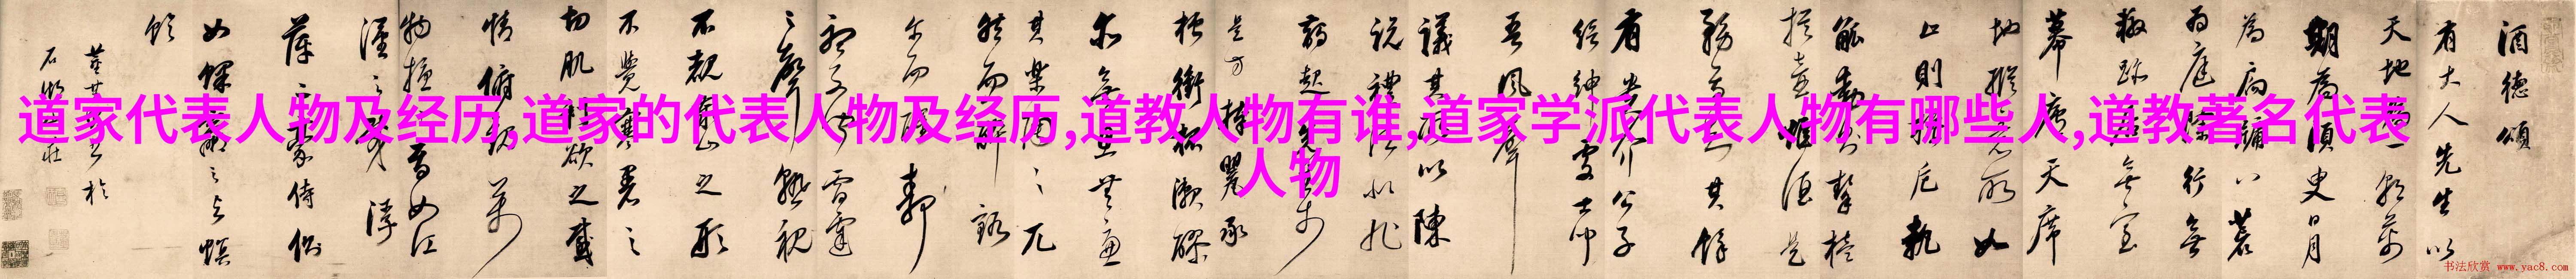 道家代表人物及经历,道家的代表人物及经历,道教人物有谁,道家学派代表人物有哪些人,道教著名代表
人物
酒德頌
有大人先生以
天地為一朝萬
期為須臾日月
為扃牖八荒
為庭除行無
轍跡居無室
幕天席
地縱意所如
止則操卮執
觚動則挈榼
提壺唯酒是
務焉知其餘
有貴介公子
紳處士
吾風聲
議其所以陳
說禮法是非
起先生於
是方捧罌承
槽銜杯漱醪
無思無慮
其樂陶陶兀
然而醉豁
爾而醒靜
聽不聞雷霆
之聲熟視
不覩泰山之形
不覺寒暑之
切肌利欲之感
情俯觀萬
物擾擾焉如江
漢之載浮
萍二豪侍側
如蜾蠃之與螟
蛉
董其昌書於
石湖山莊
书法欣赏 www.yac8.com